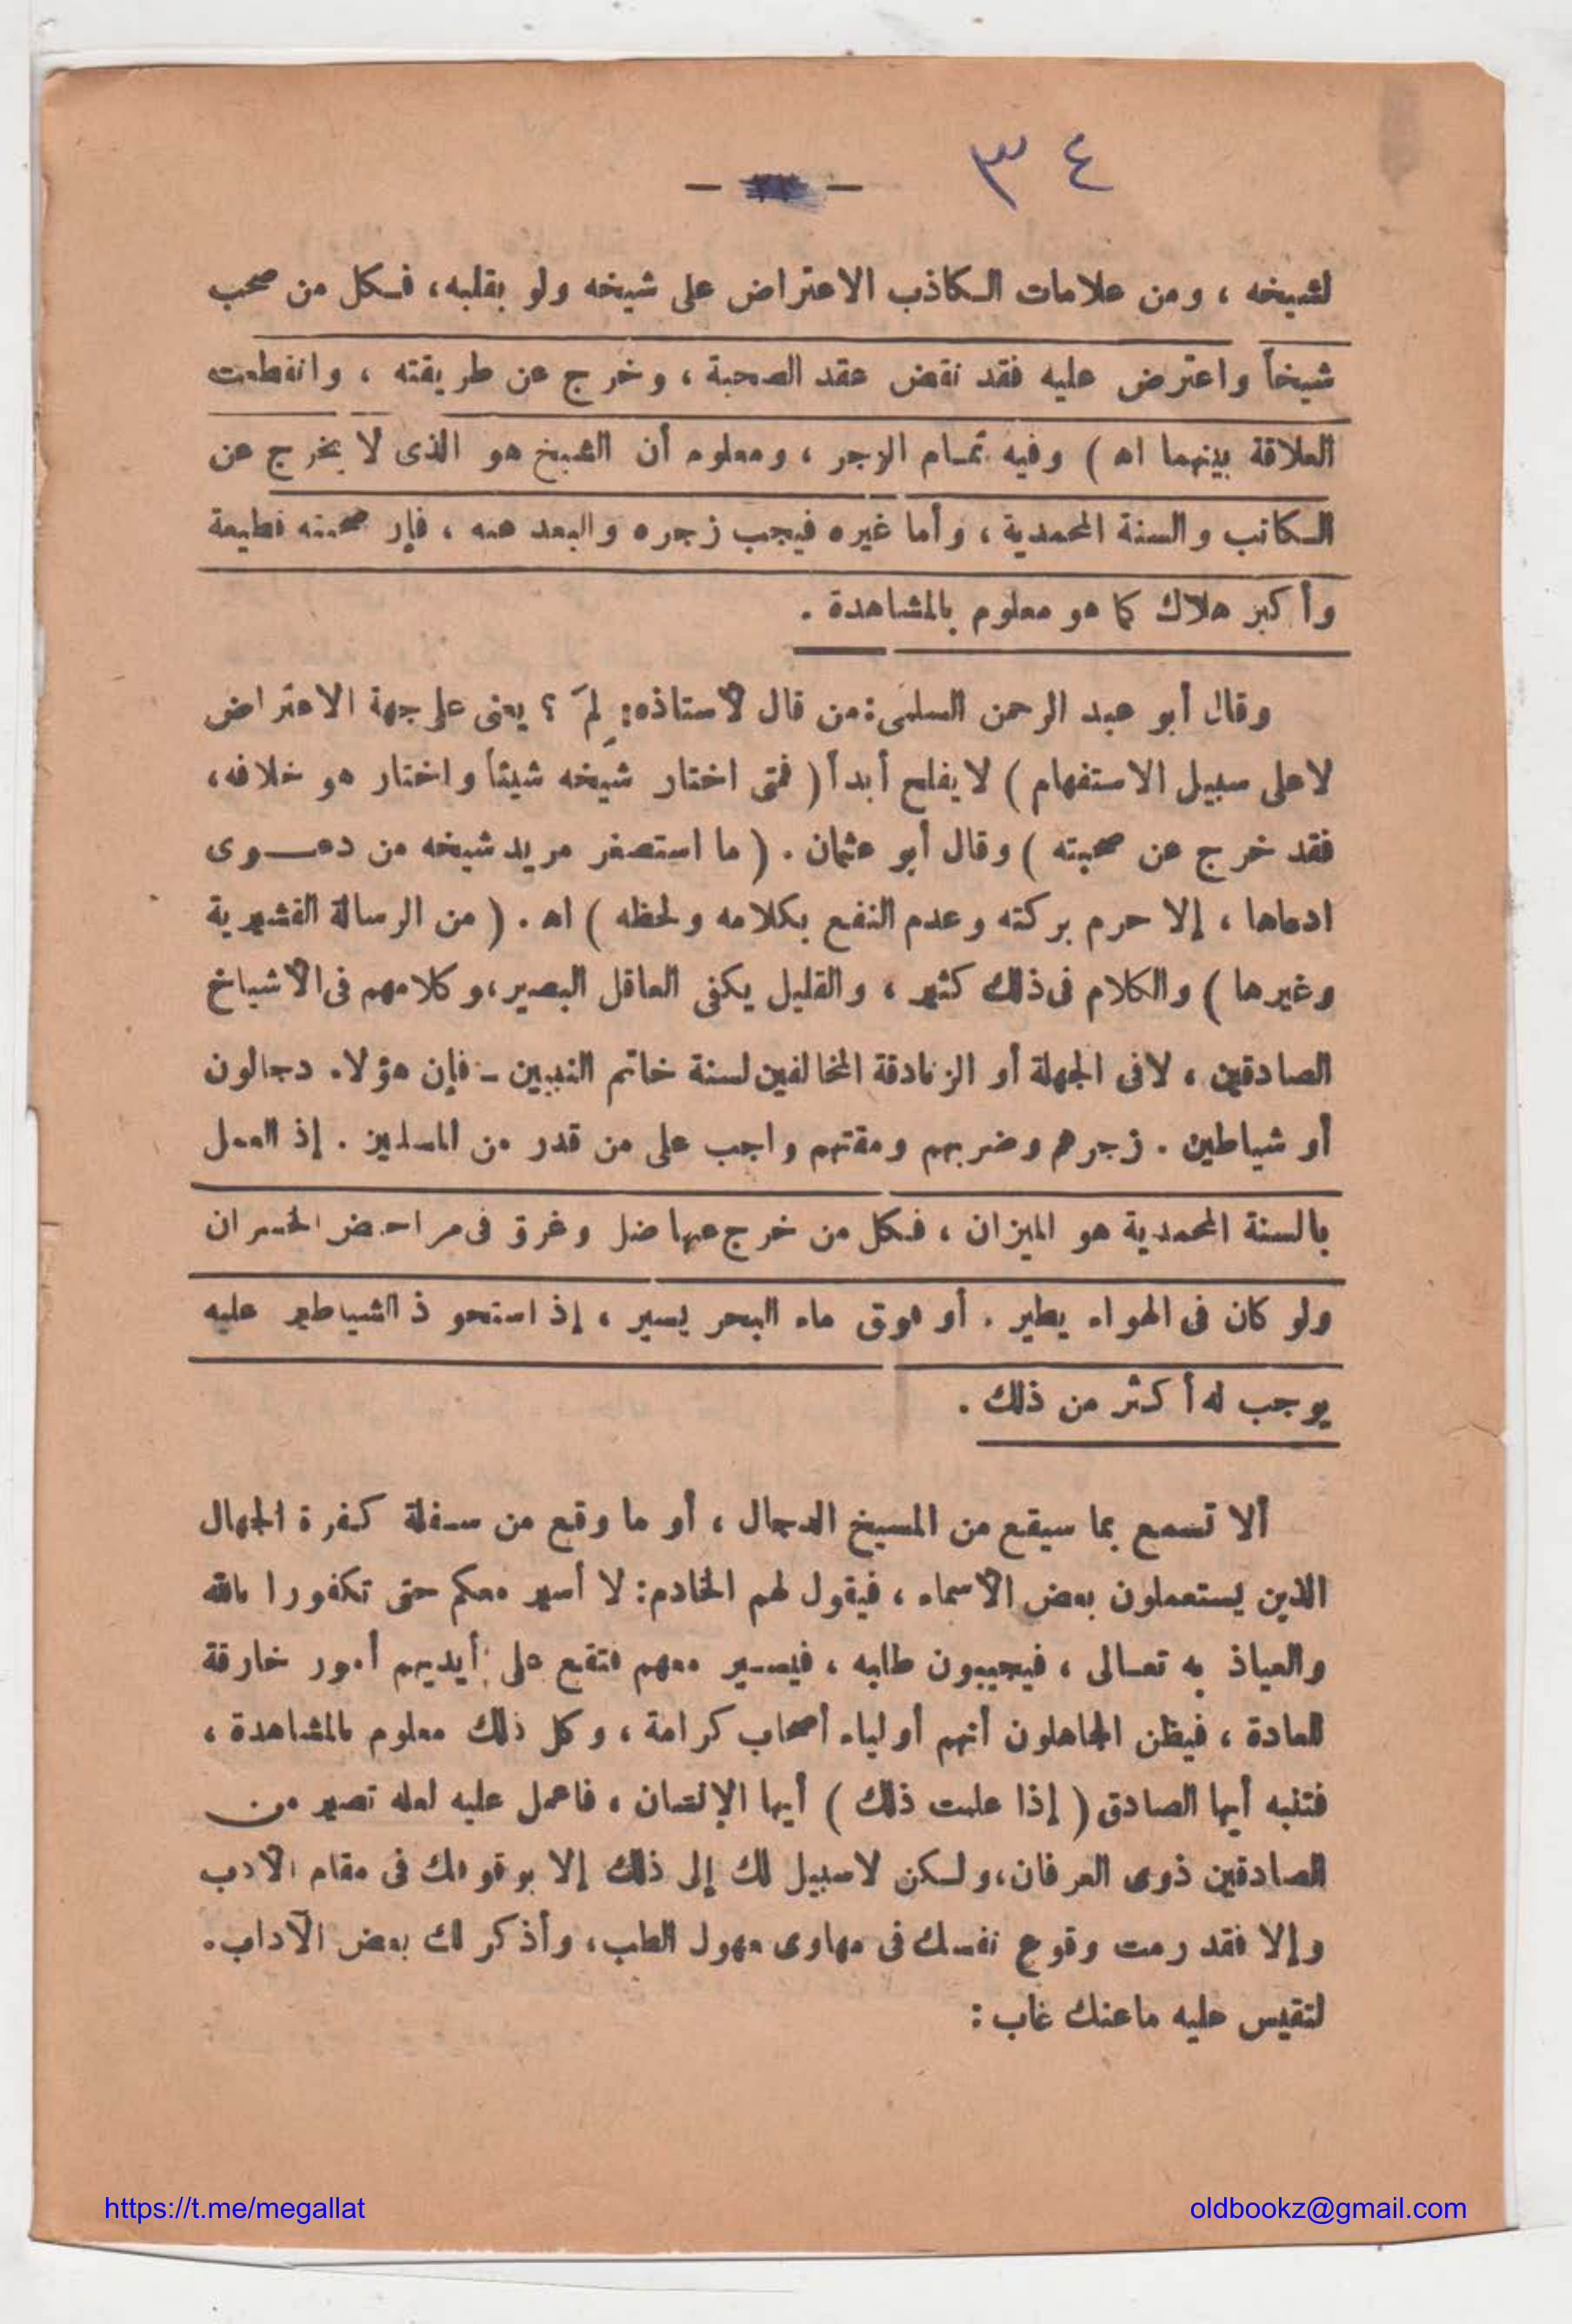 ٣٤
لشيخه ، ومن علامات الكاذب الاعتراض على شيخه ولو بقلبه، فكل من صحب
شيخاً واعترض عليه فقد نقض عقد الصحبة ، وخرج عن طريقته ، وانقطعت
العلاقة بينهما اه ) وفيه تمام الزجر ، ومعلوم أن الشيخ هو الذى لا يخرج عن
الكاتب والسنة المحمدية ، وأما غيره فيجب زجره والبعد عنه ، فإن صحبته قطيعة
وأكبر هلاك كما هو معلوم بالمشاهدة .
وقال أبو عبد الرحمن السلمى : من قال لأستاذه : لِمَ ؟ يعنى على جهة الاعتراض
لا على سبيل الاستفهام ) لا يفلح أبداً ( فمتى اختار شيخه شيئاً واختار هو خلافه،
فقد خرج عن صحبته ) وقال أبو عثمان . ( ما استصغر مريد شيخه من دعوى
ادعاها ، إلا حرم بركته وعدم النفع بكلامه ولحظه ) اه . ( من الرسالة القشيرية
وغيرها ) والكلام فى ذلك كثير ، والقليل يكفى العاقل البصير ، وكلامهم فى الأشياخ
الصادقين ، لا فى الجهلة أو الزنادقة المخالفين لسنة خاتم النبيين - فإن هؤلاء دجالون
أو شياطين . زجرهم وضربهم ومقتهم واجب على من قدر من المسلمين . إذ العمل
بالسنة المحمدية هو الميزان ، فكل من خرج عنها ضل وغرق فى مراحض الخسران
ولو كان فى الهواء يطير . أو فوق ماء البحر يسير ، إذ استحوذ الشياطين عليه
يوجب له أكثر من ذلك .
ألا تسمع بما سيقع من المسيخ الدجال ، أو ما وقع من سفلة كفرة الجهال
الذين يستعملون بعض الأسماء ، فيقول لهم الخادم : لا أسير معكم حتى تكفورا بالله
والعياذ به تعالى ، فيجيبون طلبه ، فيسير معهم فتقع على أيديهم أمور خارقة
للعادة ، فيظن الجاهلون أنهم أولياء أصحاب كرامة ، وكل ذلك معلوم بالمشاهدة ،
فتنبه أيها الصادق ( إذا علمت ذلك ) أيها الإنسان ، فاعمل عليه لعله تصير من
الصادقين ذوى العرفان ، ولكن لا سبيل لك إلى ذلك إلا بوقوفك فى مقام الأدب
وإلا فقد رمت وقوع نفسك فى مهاوى مهول العطب ، وأذكر لك بعض الآداب .
لتقيس عليه ما عنك غاب :
https://t.me/megallat
oldbookz@gmail.com